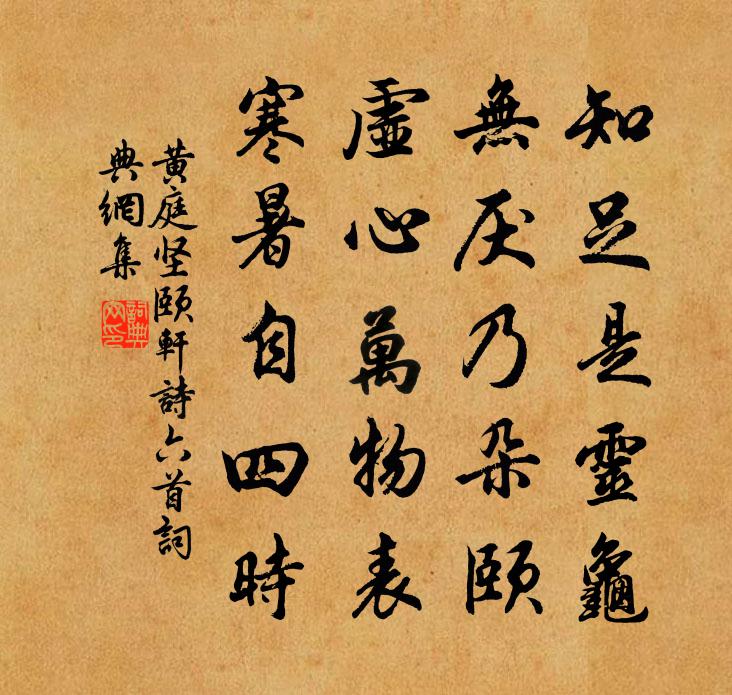 知足是靈龜
無厌乃朵頤
虛心萬物表
寒暑自四時
黄庭坚頤軒詩六首詞
典網集
詞典网印